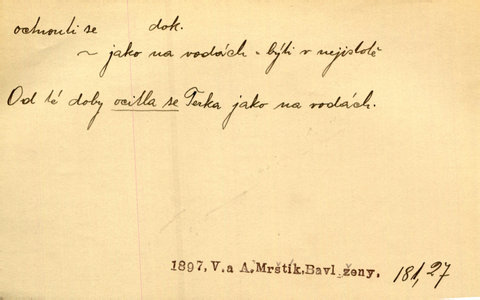 octnouti se dok.
~ jako na vodách - býti v nejistotě
Od té doby ocitla se Terka jako na vodách.
1897, V. a A. Mrštík, Bavl. ženy. 181,27